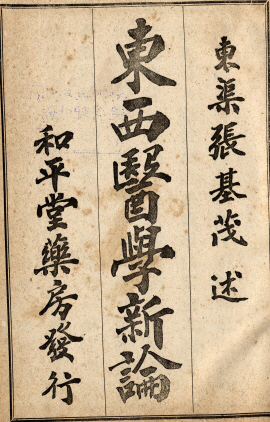 東渠張基茂述
東西醫學新論
和平堂藥房發行